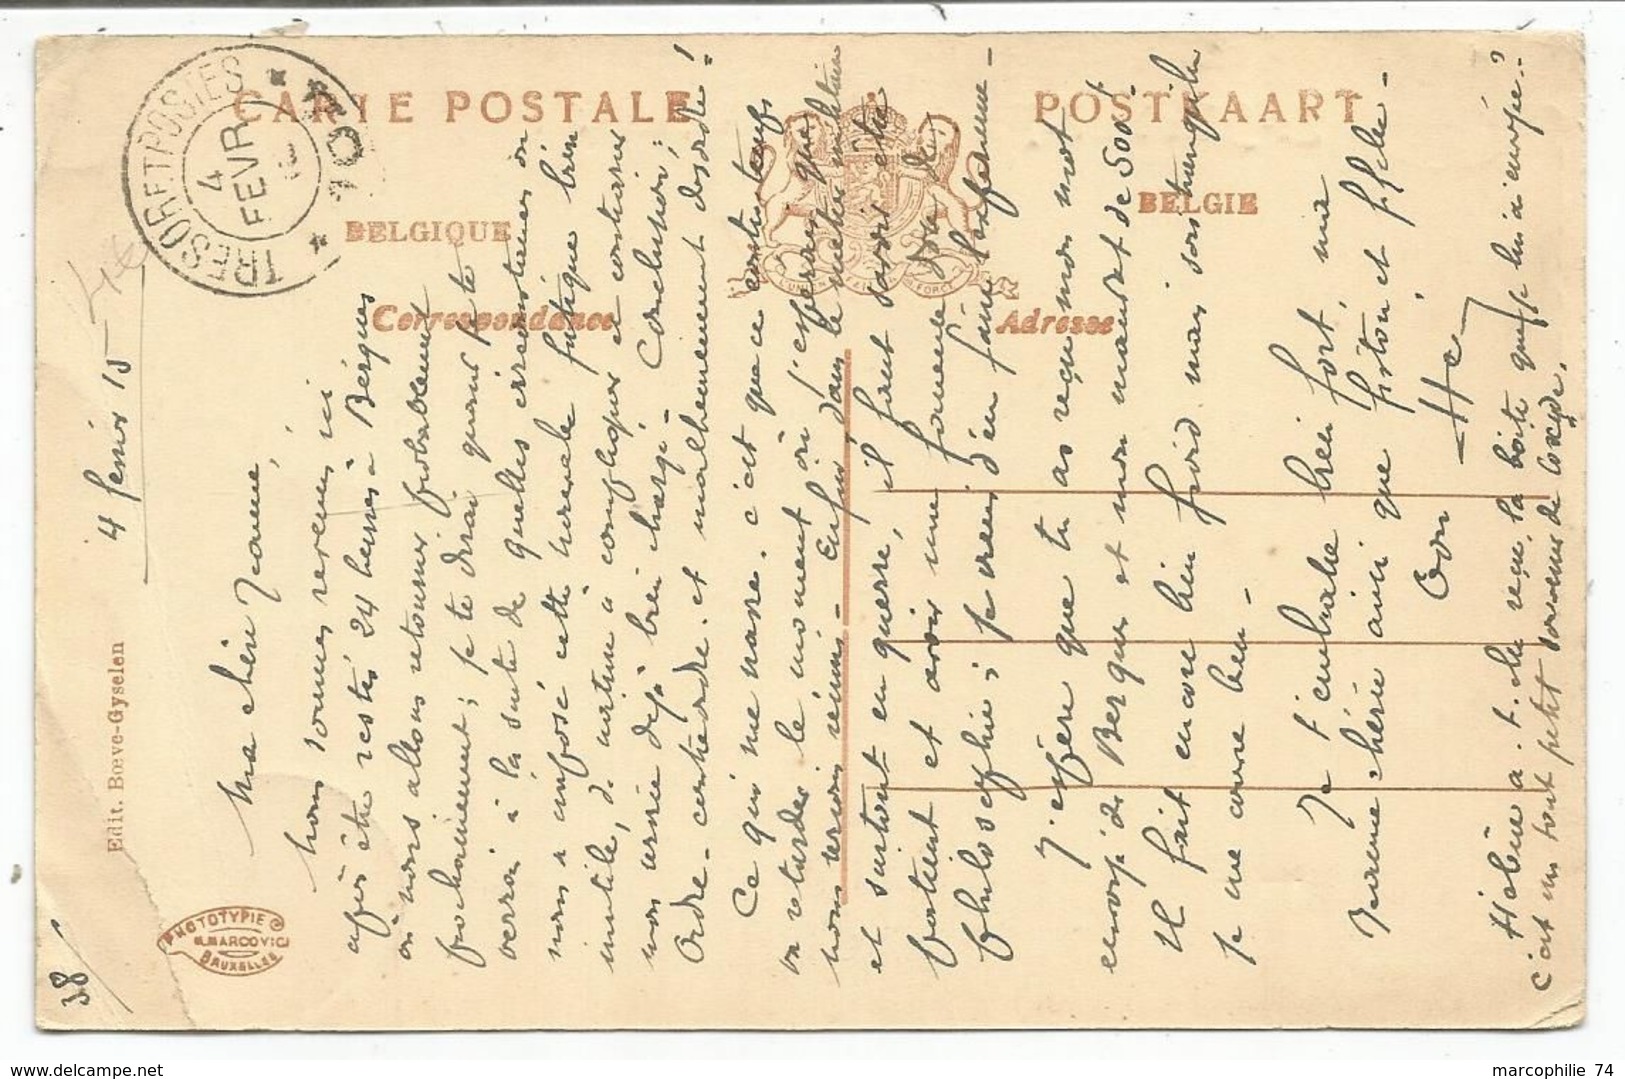 CARTE POSTALE
POSTKAART
BELGIQUE
BELGIE
Correspondance
Adresse
TRESOR ET POSTES
4
FEVR
L'UNION FAIT LA FORCE
Edit. Bœve-Gyselen
PHOTOTYPIE
MARCOVICI
BRUXELLES
38
4 février 15
Ma chère Jeanne,
Nous sommes revenus ici
après être restés 24 heures à Bergues
où nous allons retourner probablement
prochainement ; je te dirai quand je te
verrai à la suite de quelles circonstances on
nous a imposé cette fatigue bien
inutile, de nature à compliquer et contrarier
mon service déjà bien chargé - Conclusion :
Ordre - contreordre - et malheureusement désordre !
Ce qui me navre, c'est que ce contretemps
va retarder le moment où j'espérais que
nous serions réunis - Enfin, dans le métier militaire
et surtout en guerre, il faut savoir être
patient et avoir une
philosophie ; je viens d'en faire l'expérience -
J'espère que tu as reçu mon mot
envoyé de Bergues et mon mandat de 500 f
Il fait encore bien froid mais sois tranquille
je me couvre bien -
Je t'embrasse bien fort, ma
Jeanne chérie ainsi que
Ton
Hélène a-t-elle reçu la boîte que je lui ai envoyée ?
c'est un tout petit souvenir de Coxyde.
delcampe.net
marcophilie 74